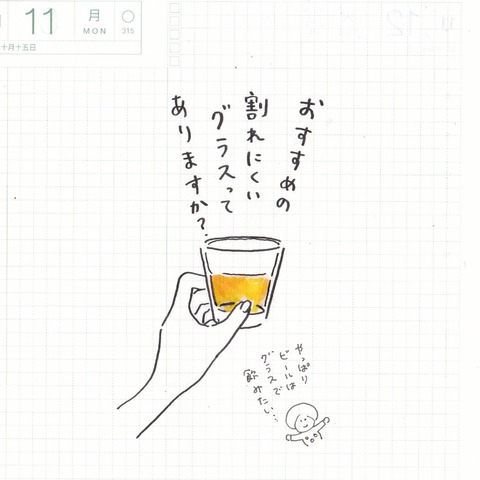 11
月
MON
315
十月十五日
おすすめの
割れにくい
グラスって
ありますか?
やっぱり
ビールは
グラスで
飲みたい…